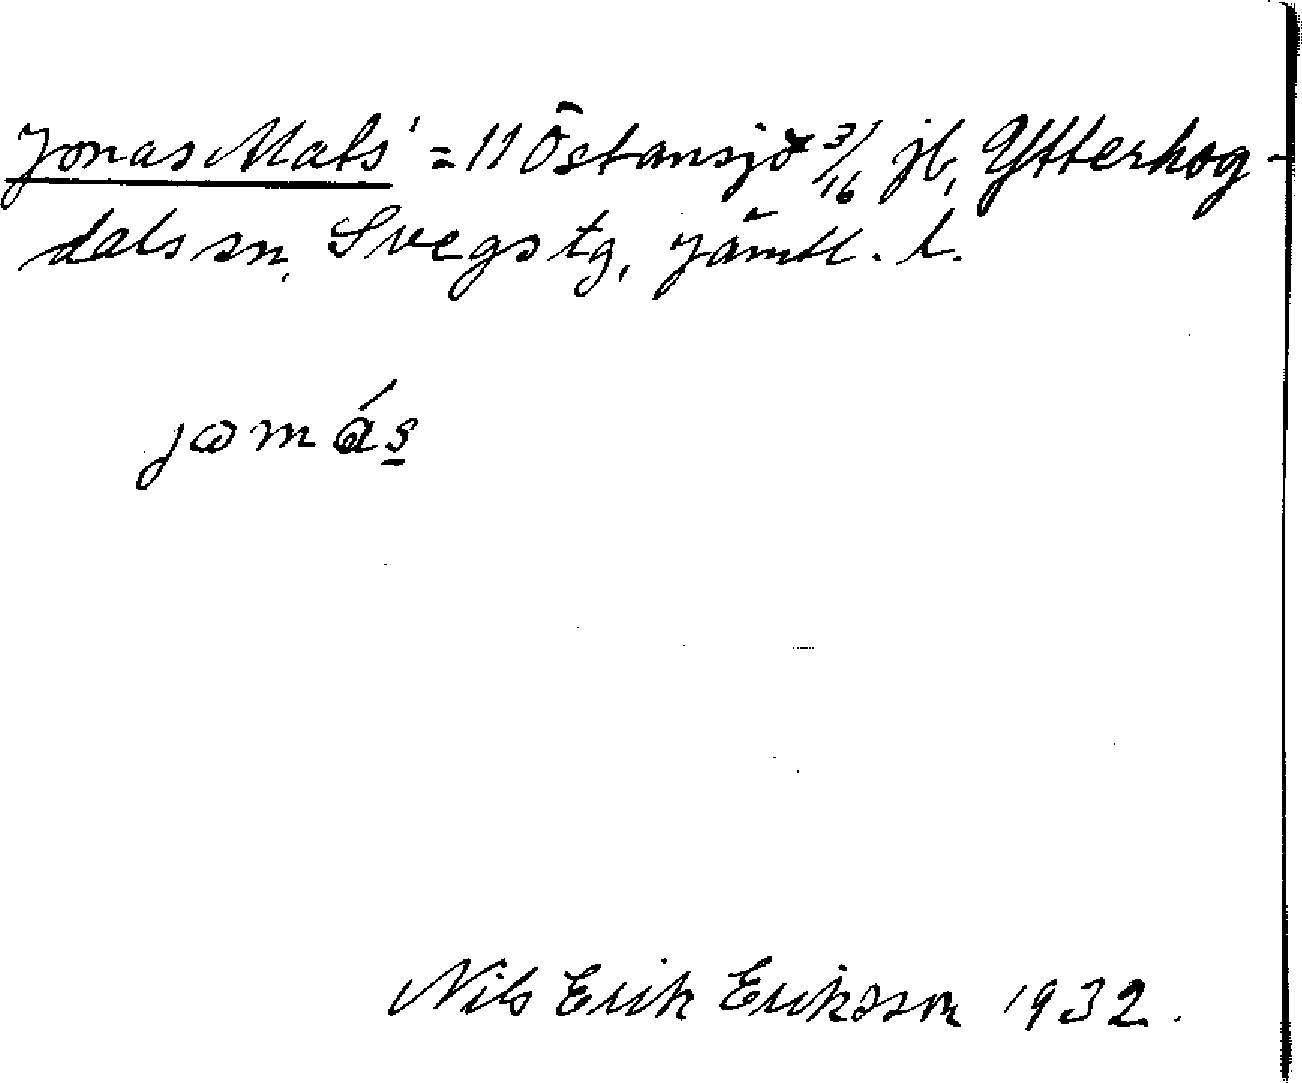 Jonas Mats' = 11 Östansjö 3/16 jb, Ytterhog-
dals sn, Svegs tg, Jämtl. l.
jomás
Nils Erik Eriksson 1932.